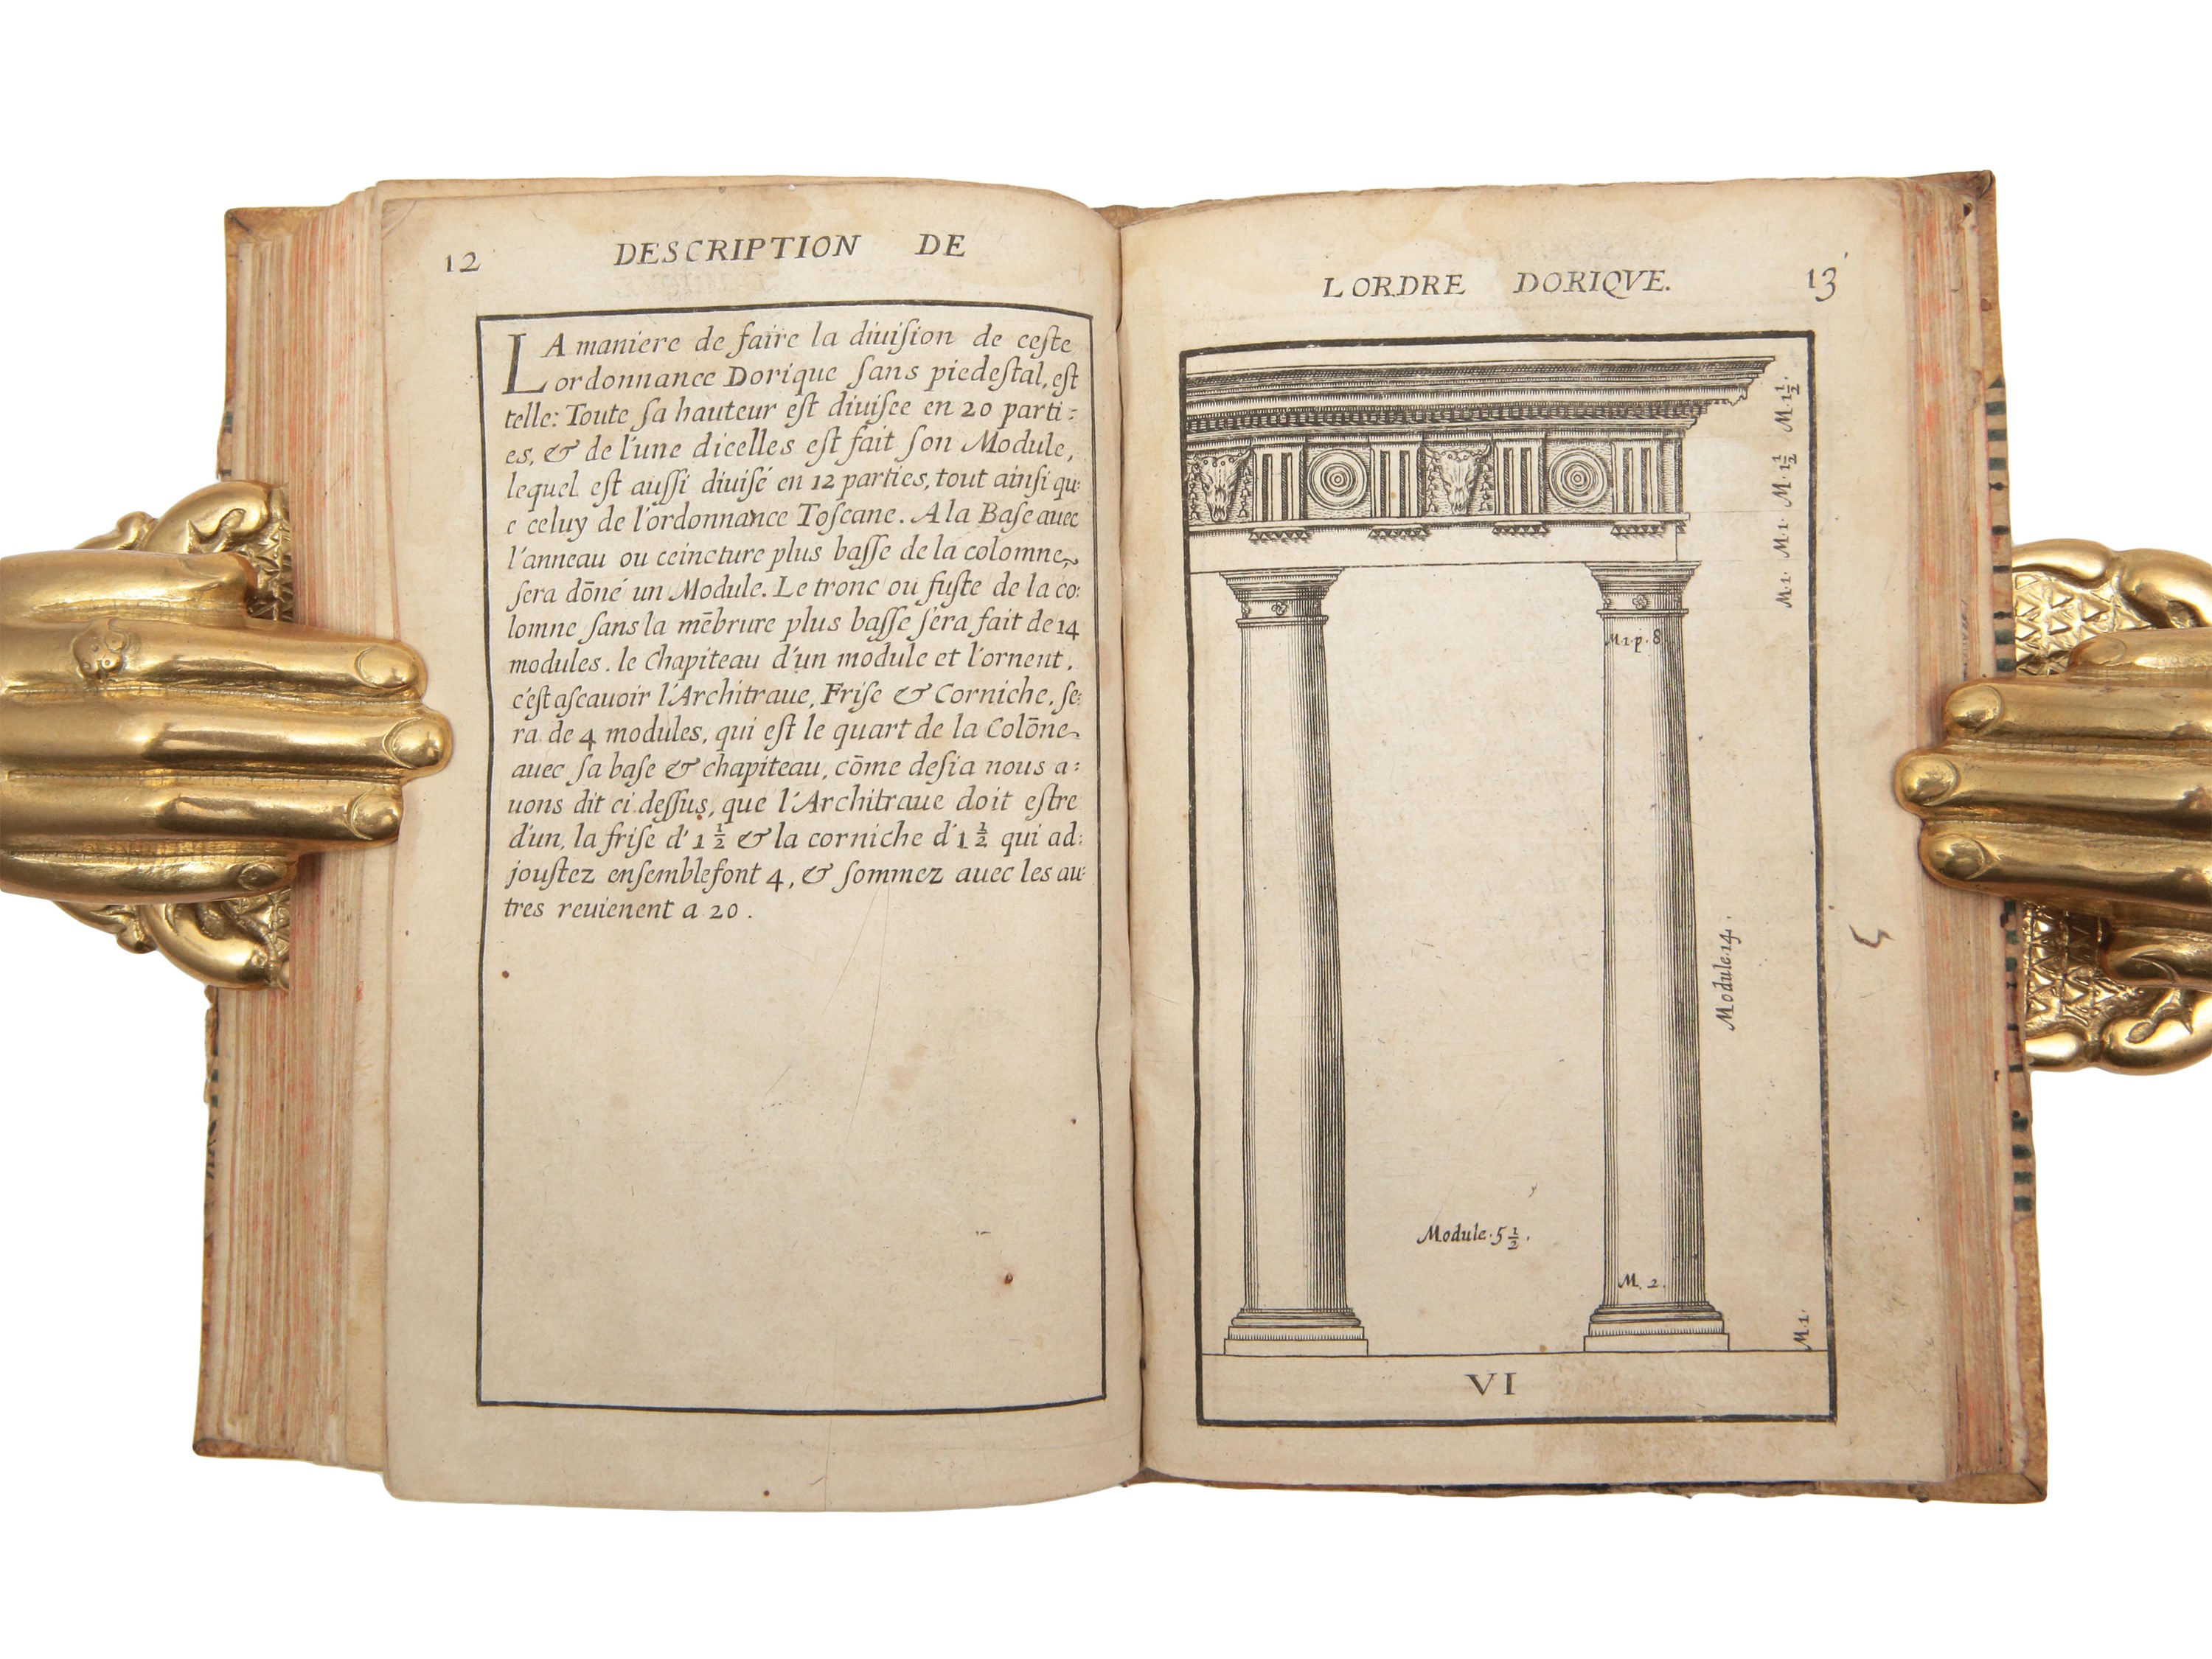 12 DESCRIPTION DE
LA maniere de faire la diuiſion de ceſte
ordonnance Dorique ſans piedeſtal, eſt
telle: Toute ſa hauteur eſt diuiſee en 20 parti:
es, & de l'une dicelles eſt fait ſon Module,
lequel eſt auſſi diuiſé en 12 parties, tout ainſi qu:
e celuy de l'ordonnance Toſcane. A la Baſe auec
l'anneau ou ceincture plus baſſe de la colomne
ſera dōné un Module. Le tronc ou fuſte de la co:
lomne ſans la mēbrure plus baſſe ſera fait de 14
modules. le Chapiteau d'un module et l'ornent,
c'eſt aſcauoir l'Architraue, Friſe & Corniche, ſe:
ra de 4 modules, qui eſt le quart de la Colōne
auec ſa baſe & chapiteau, cōme deſia nous a:
uons dit ci deſſus, que l'Architraue doit eſtre
d'un, la friſe d' 1 ½ & la corniche d' 1 ½ qui ad:
jouſtez enſemble font 4, & ſommez auec les au:
tres reuienent a 20.
LORDRE DORIQVE. 13
M.1½.
M.1½
M.1.
M.1.
M.1.p.8.
Module.14.
Module.5½.
M.2.
M.1.
VI